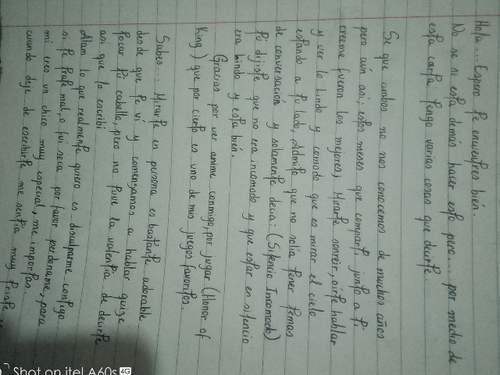 Hola... Espero te encuentres bien.
No se si esta demás hacer esto pero... por medio de
esta carta tengo varias cosas que decirte
Se que ambos no nos conocemos de muchos años
pero aún asi; estos meses que compartí junto a ti
creeme fueron los mejores, Mirarte sonreir, oirte hablar
y ver lo lindo y comodo que es mirar el cielo
estando a tu lado, Admito que no solía tener temas
de conversación y solamente decia: (Silencio Incomodo)
Tú dijiste que no era incomodo y que estar en silencio
era lindo y esta bién.
Gracias por ver anime conmigo, por jugar (Honor of
King) que por cierto es uno de mis juegos favoritos.
Sabes... Mirarte en persona es bastante adorable
desde que te vi y comenzamos a hablar quize
tocar tu cabello, pero no tuve la valentia de decirte
asi que lo escribi
Alam lo que realmente quiero es disculparme contigo
si te traté mal, o fui seca por favor perdoname, para
mi eres un chico muy especial, me importas.
cuando deje de escribirte me sentia muy triste
Shot on itel A60s 4G